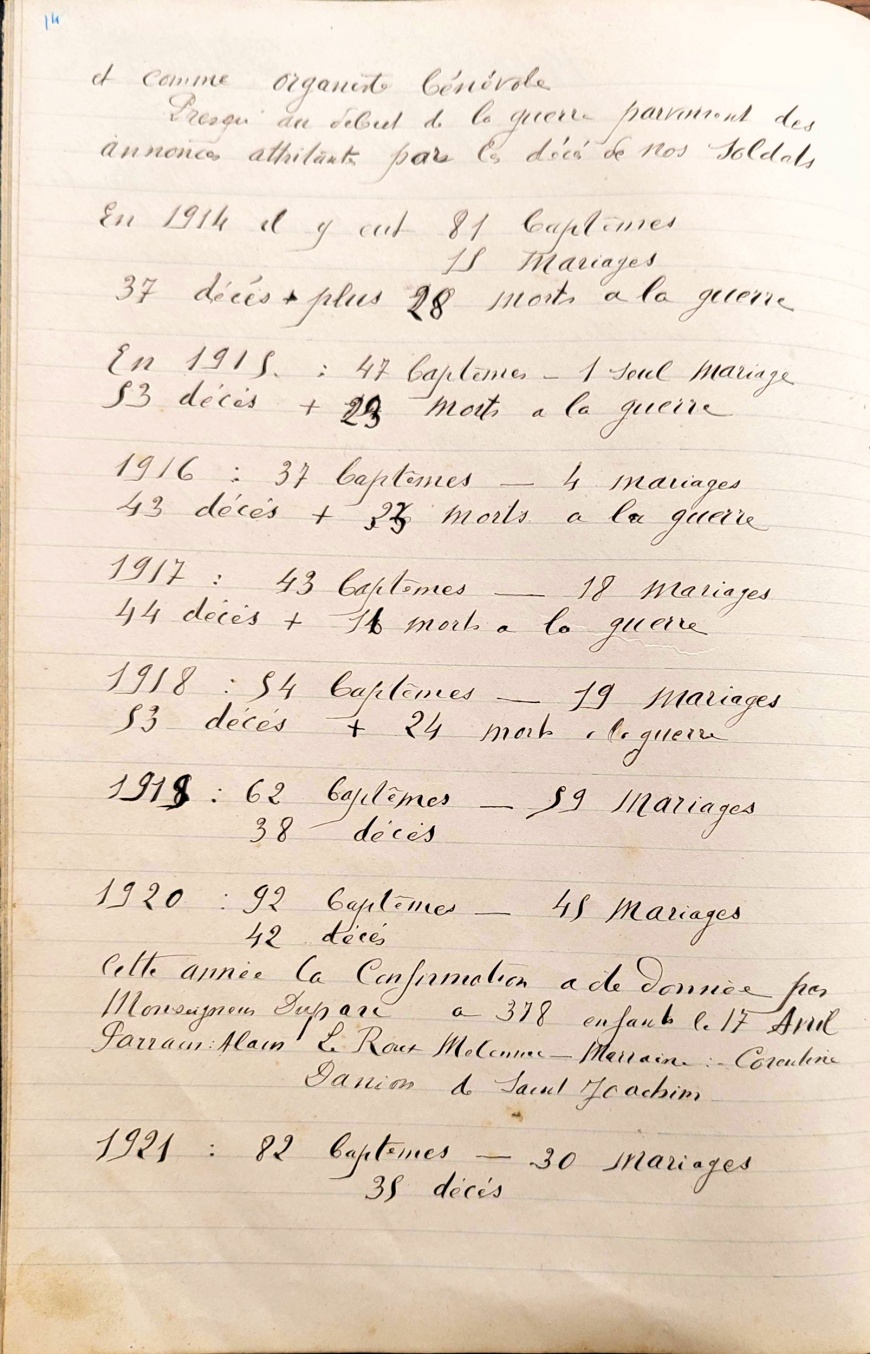 14
et comme organiste bénévole
Presqu'au debut de la guerre parviennent des
annonces attristants par les décés de nos Soldats
En 1914 il y eut 81 baptêmes
15 Mariages
37 décés + plus 28 morts a la guerre
En 1915. : 47 baptêmes – 1 seul Mariage
53 décés + morts a la guerre
1916 : 37 baptêmes — 4 mariages
43 décés + morts a la guerre
1917 : 43 baptêmes — 18 Mariages
44 décés + morts a la guerre
1918 : 54 baptêmes — 19 Mariages
53 décés + 24 morts a la guerre
1919 : 62 baptêmes — 59 Mariages
38 décés
1920 : 92 baptêmes — 45 Mariages
42 décés
Cette année la Confirmation a de Donnée par
Monseigneur Duparc a 378 enfants le 17 Avril
Parrain : Alain Le Roux – Marraine : – Corentine
Danion de Saint Joachim
1921 : 82 baptêmes — 30 Mariages
35 décés